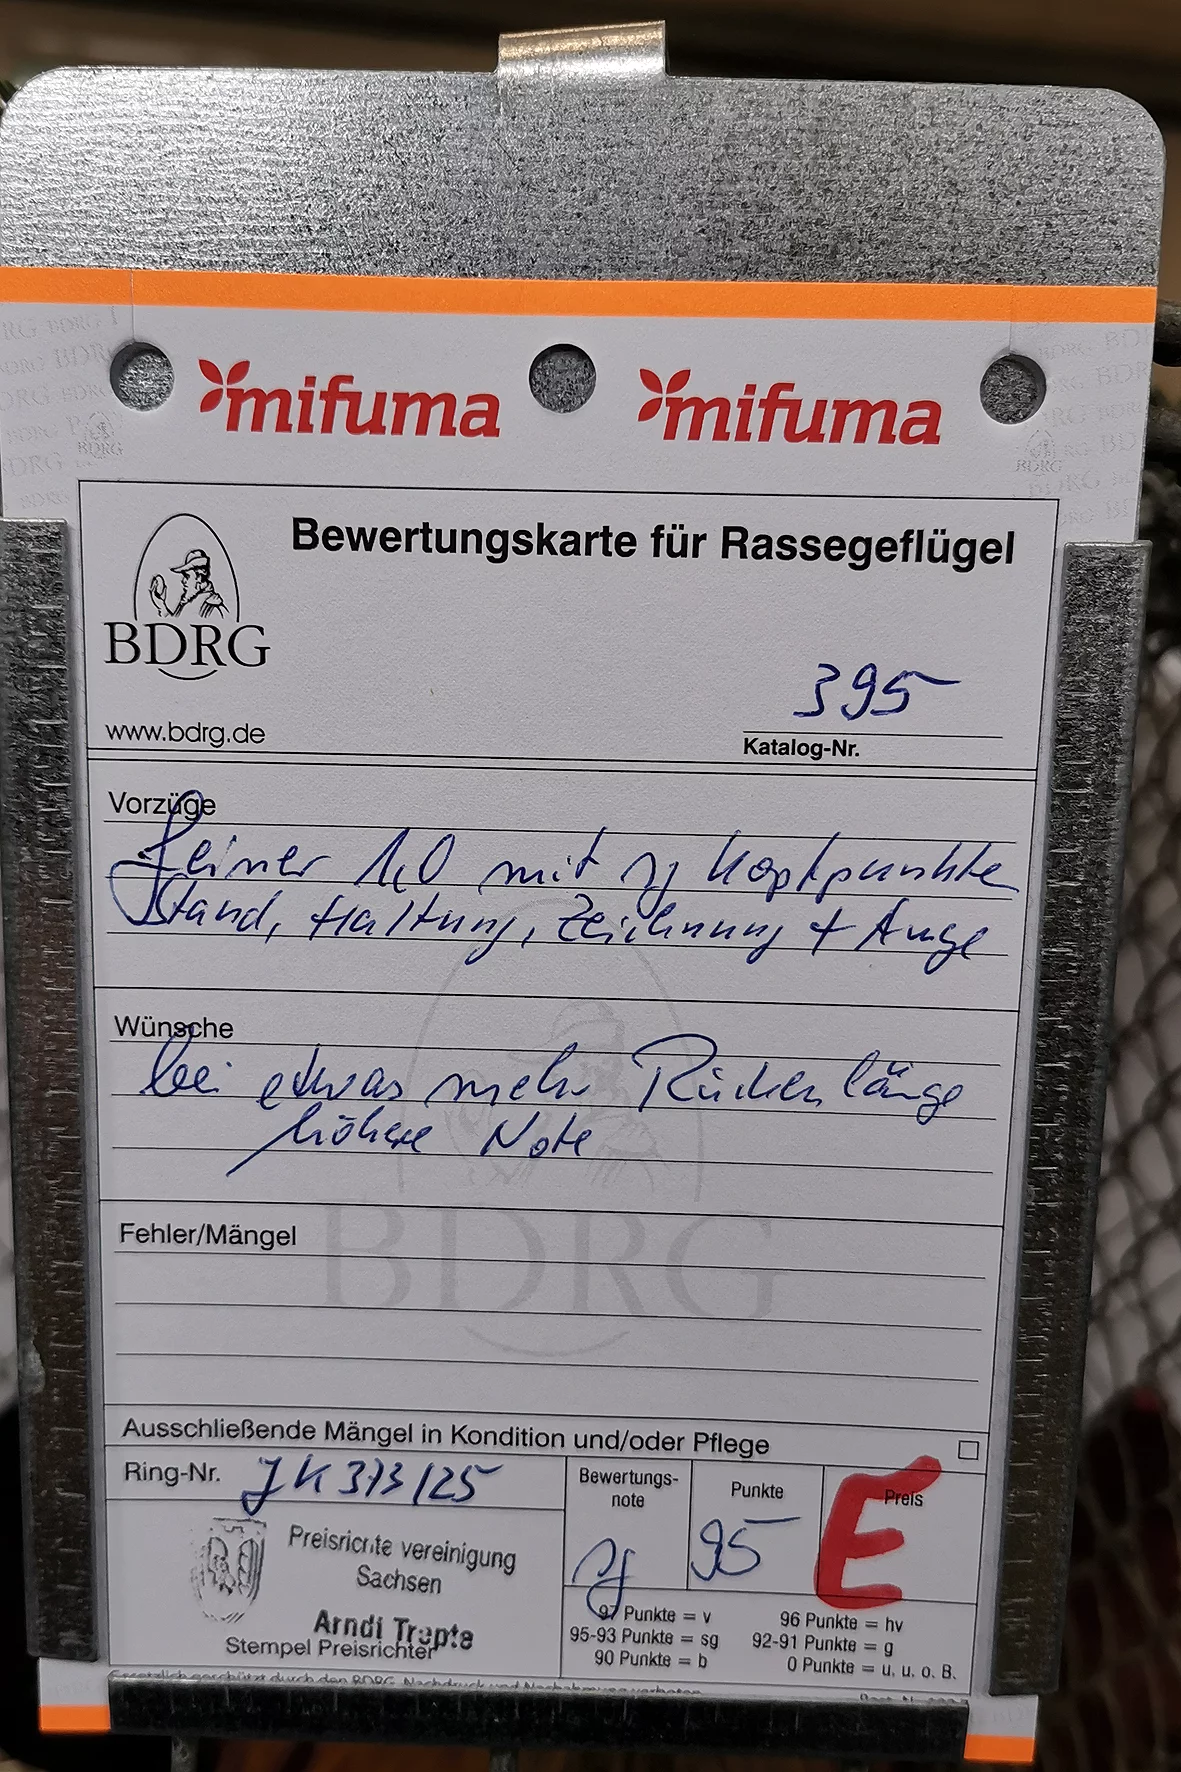 mifuma mifuma
BDRG
Bewertungskarte für Rassegeflügel
BDRG
www.bdrg.de
395
Katalog-Nr.
Vorzüge
feiner 1,0 mit sg Kopfpunkte
Stand, Haltung, Zeichnung + Auge
Wünsche
bei etwas mehr Rückenlänge
höhere Note
BDRG
Fehler/Mängel
Ausschließende Mängel in Kondition und/oder Pflege
Ring-Nr. JK 373/25
Bewertungs-
note
sg
Punkte
95
Preis
E
Preisrichte vereinigung
Sachsen
Arndt Trepte
Stempel Preisrichter
97 Punkte = v 96 Punkte = hv
95-93 Punkte = sg 92-91 Punkte = g
90 Punkte = b 0 Punkte = u, u. o. B.
Gesetzlich geschützt durch den BDRG. Nachdruck und Nachahmung verboten